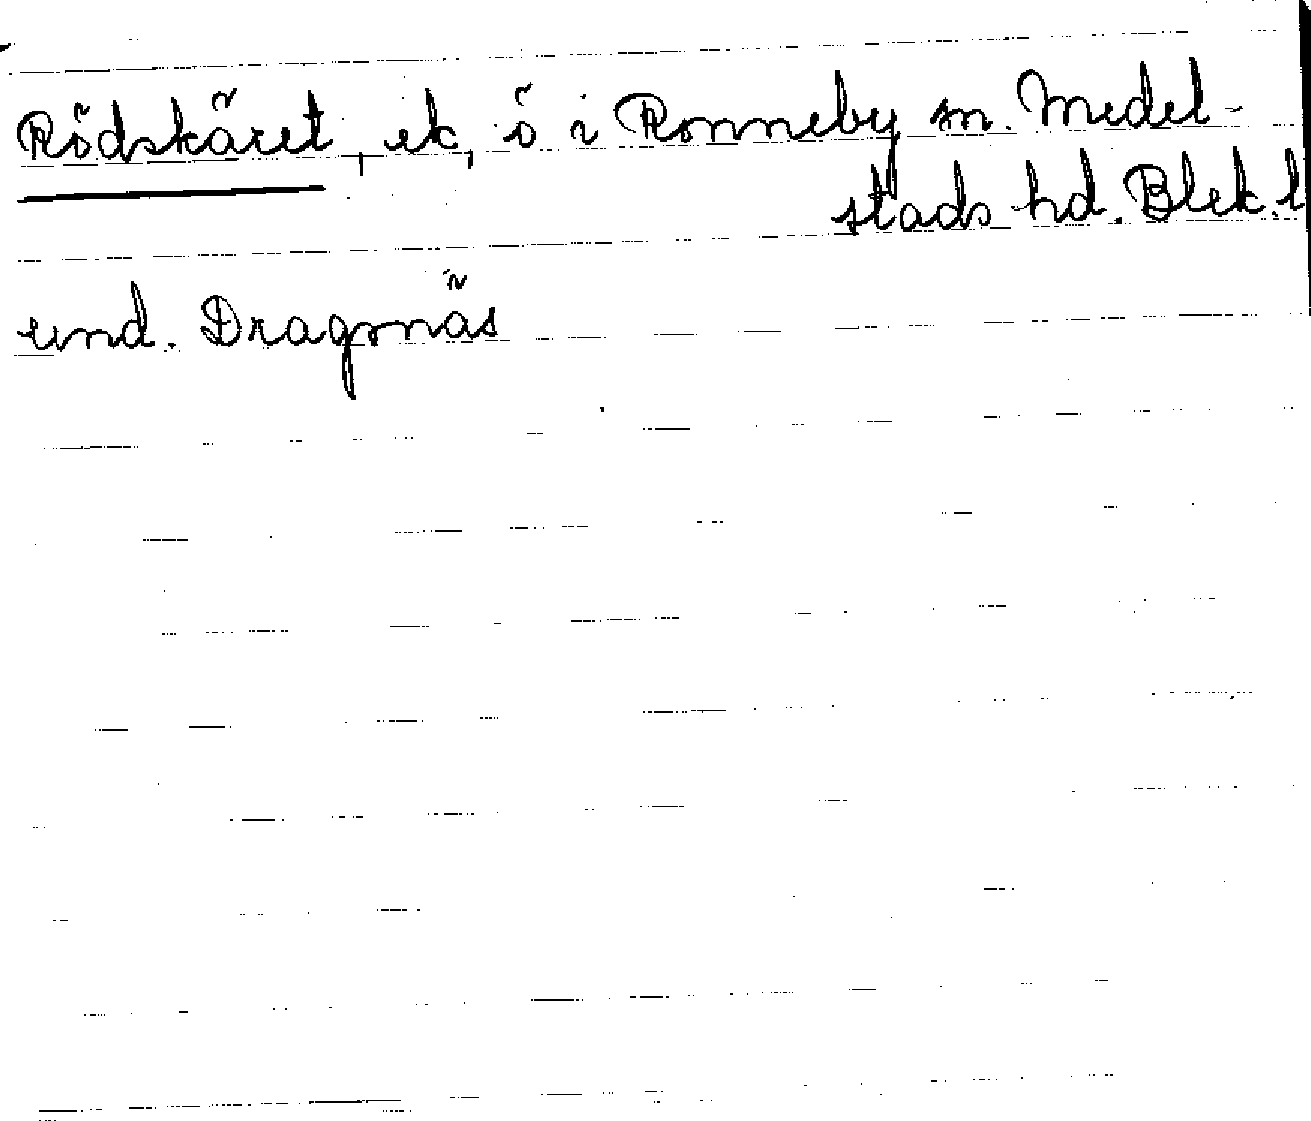 Rödskäret, ek, ö i Ronneby sn. Medel-
stads hd. Blek. l
und. Dragsnäs